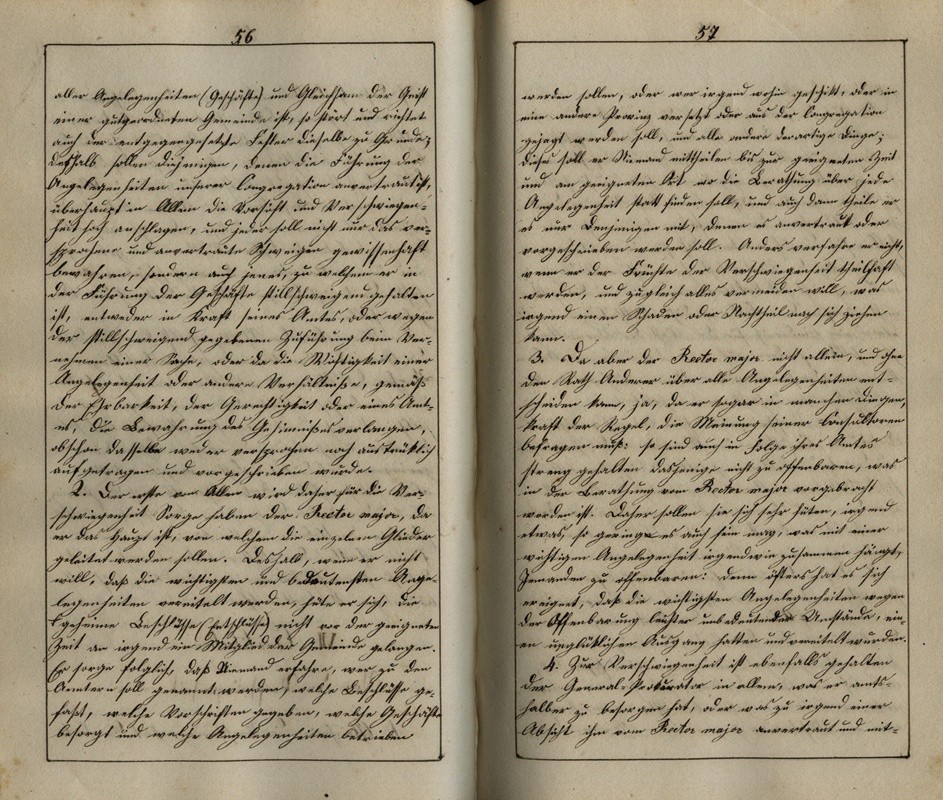 56
aller Angelegenheiten (Geschäfte) und Gleichsam der Geist
einer gutgeordneten Gemeinde ist, so stört und richtet
auch der entgegengesetzte Fehler dieselbe zu Grunde;
deßhalb sollen diejenigen, denen die Führung der
Angelegenheiten unserer Congregation anvertraut ist,
überhaupt in Allem die Vorsicht und Verschwiegen-
heit hoch anschlagen, und jeder soll nicht nur das ver-
sprochene und anvertraute Schweigen gewissenhaft
bewahren, sondern auch jenes, zu welchem er in
der Führung der Geschäfte stillschweigend gehalten
ist, entweder in Kraft seines Amtes, oder wegen
der stillschweigend gegebenen Zusicherung beim Ver-
nehmen einer Sache, oder da die Wichtigkeit einer
Angelegenheit oder andere Verhältniße, gemäß
der Ehrbarkeit, der Gerechtigkeit oder eines Amt-
es, die Bewahrung des Geheimnißes verlangen,
obschon dasselbe weder versprochen noch ausdrüklich
aufgetragen und vorgeschrieben wurde.
2. Der erste von Allen wird daher für die Ver-
schwiegenheit Sorge haben der Rector major, da
er das Haupt ist, von welchem die einzelnen Glieder
geleitet werden sollen. Deshalb, wenn er nicht
will, daß die wichtigsten und bedeutensten Ange-
legenheiten vereitelt werden, hüte er sich, die
geheime Beschlüsse (Entschlüsse) nicht vor der geeigneten
Zeit an irgend ein Mitglied der Gemeinde gelangen.
Er sorge folglich, daß Niemand erfahre, wer zu den
Aemtern soll genannt werden, welche Beschlüsse ge-
faßt, welche Vorschriften gegeben, welche Geschäfte
besorgt und welche Angelegenheiten betrieben
57
werden sollen, oder wer irgend wohin geschikt, oder in
eine andere Provinz versetzt oder aus der Congregation
gejagt werden soll, und alle andere derartige Dinge;
dieses soll er Niemand mittheilen bis zur geeigneten Zeit
und am geeigneten Ort wo die Berathung über jede
Angelegenheit statt finden soll, und auch dann theile er
es nur Denjenigen mit, denen es anvertraut oder
vorgeschrieben werden soll. Anders verfahre er nicht,
wenn er der Früchte der Verschwiegenheit theilhaft
werden, und zugleich alles vermeiden will, was
irgend einen Schaden oder Nachtheil nach sich ziehen
kann.
3. Da aber der Rector major nicht allein, und ohne
den Rath Anderer über alle Angelegenheiten ent-
scheiden kann, ja, da er sogar in manchen Dingen,
kraft der Regel, die Meinung seiner Consultoren
befragen muß: so sind auch in Folge ihres Amtes
streng gehalten dasjenige nicht zu offenbaren, was
in der Berathung vom Rector major vorgebracht
worden ist. Daher sollen sie sich sehr hüten, irgend
etwas, so gering es auch sein mag, was mit einer
wichtigen Angelegenheit irgendwie zusammen hängt,
Jemanden zu offenbaren: denn öfters hat es sich
ereignet, daß die wichtigsten Angelegenheiten wegen
der Offenbarung leichter unbedeutender Umstände, ein-
en unglüklichen Ausgang hatten und vereitelt wurden.
4. Zur Verschwiegenheit ist ebenfalls gehalten
der General-Procurator in allem, was er amts-
halber zu besorgen hat, oder was zu irgend einer
Absicht ihm vom Rector major anvertraut und mit-